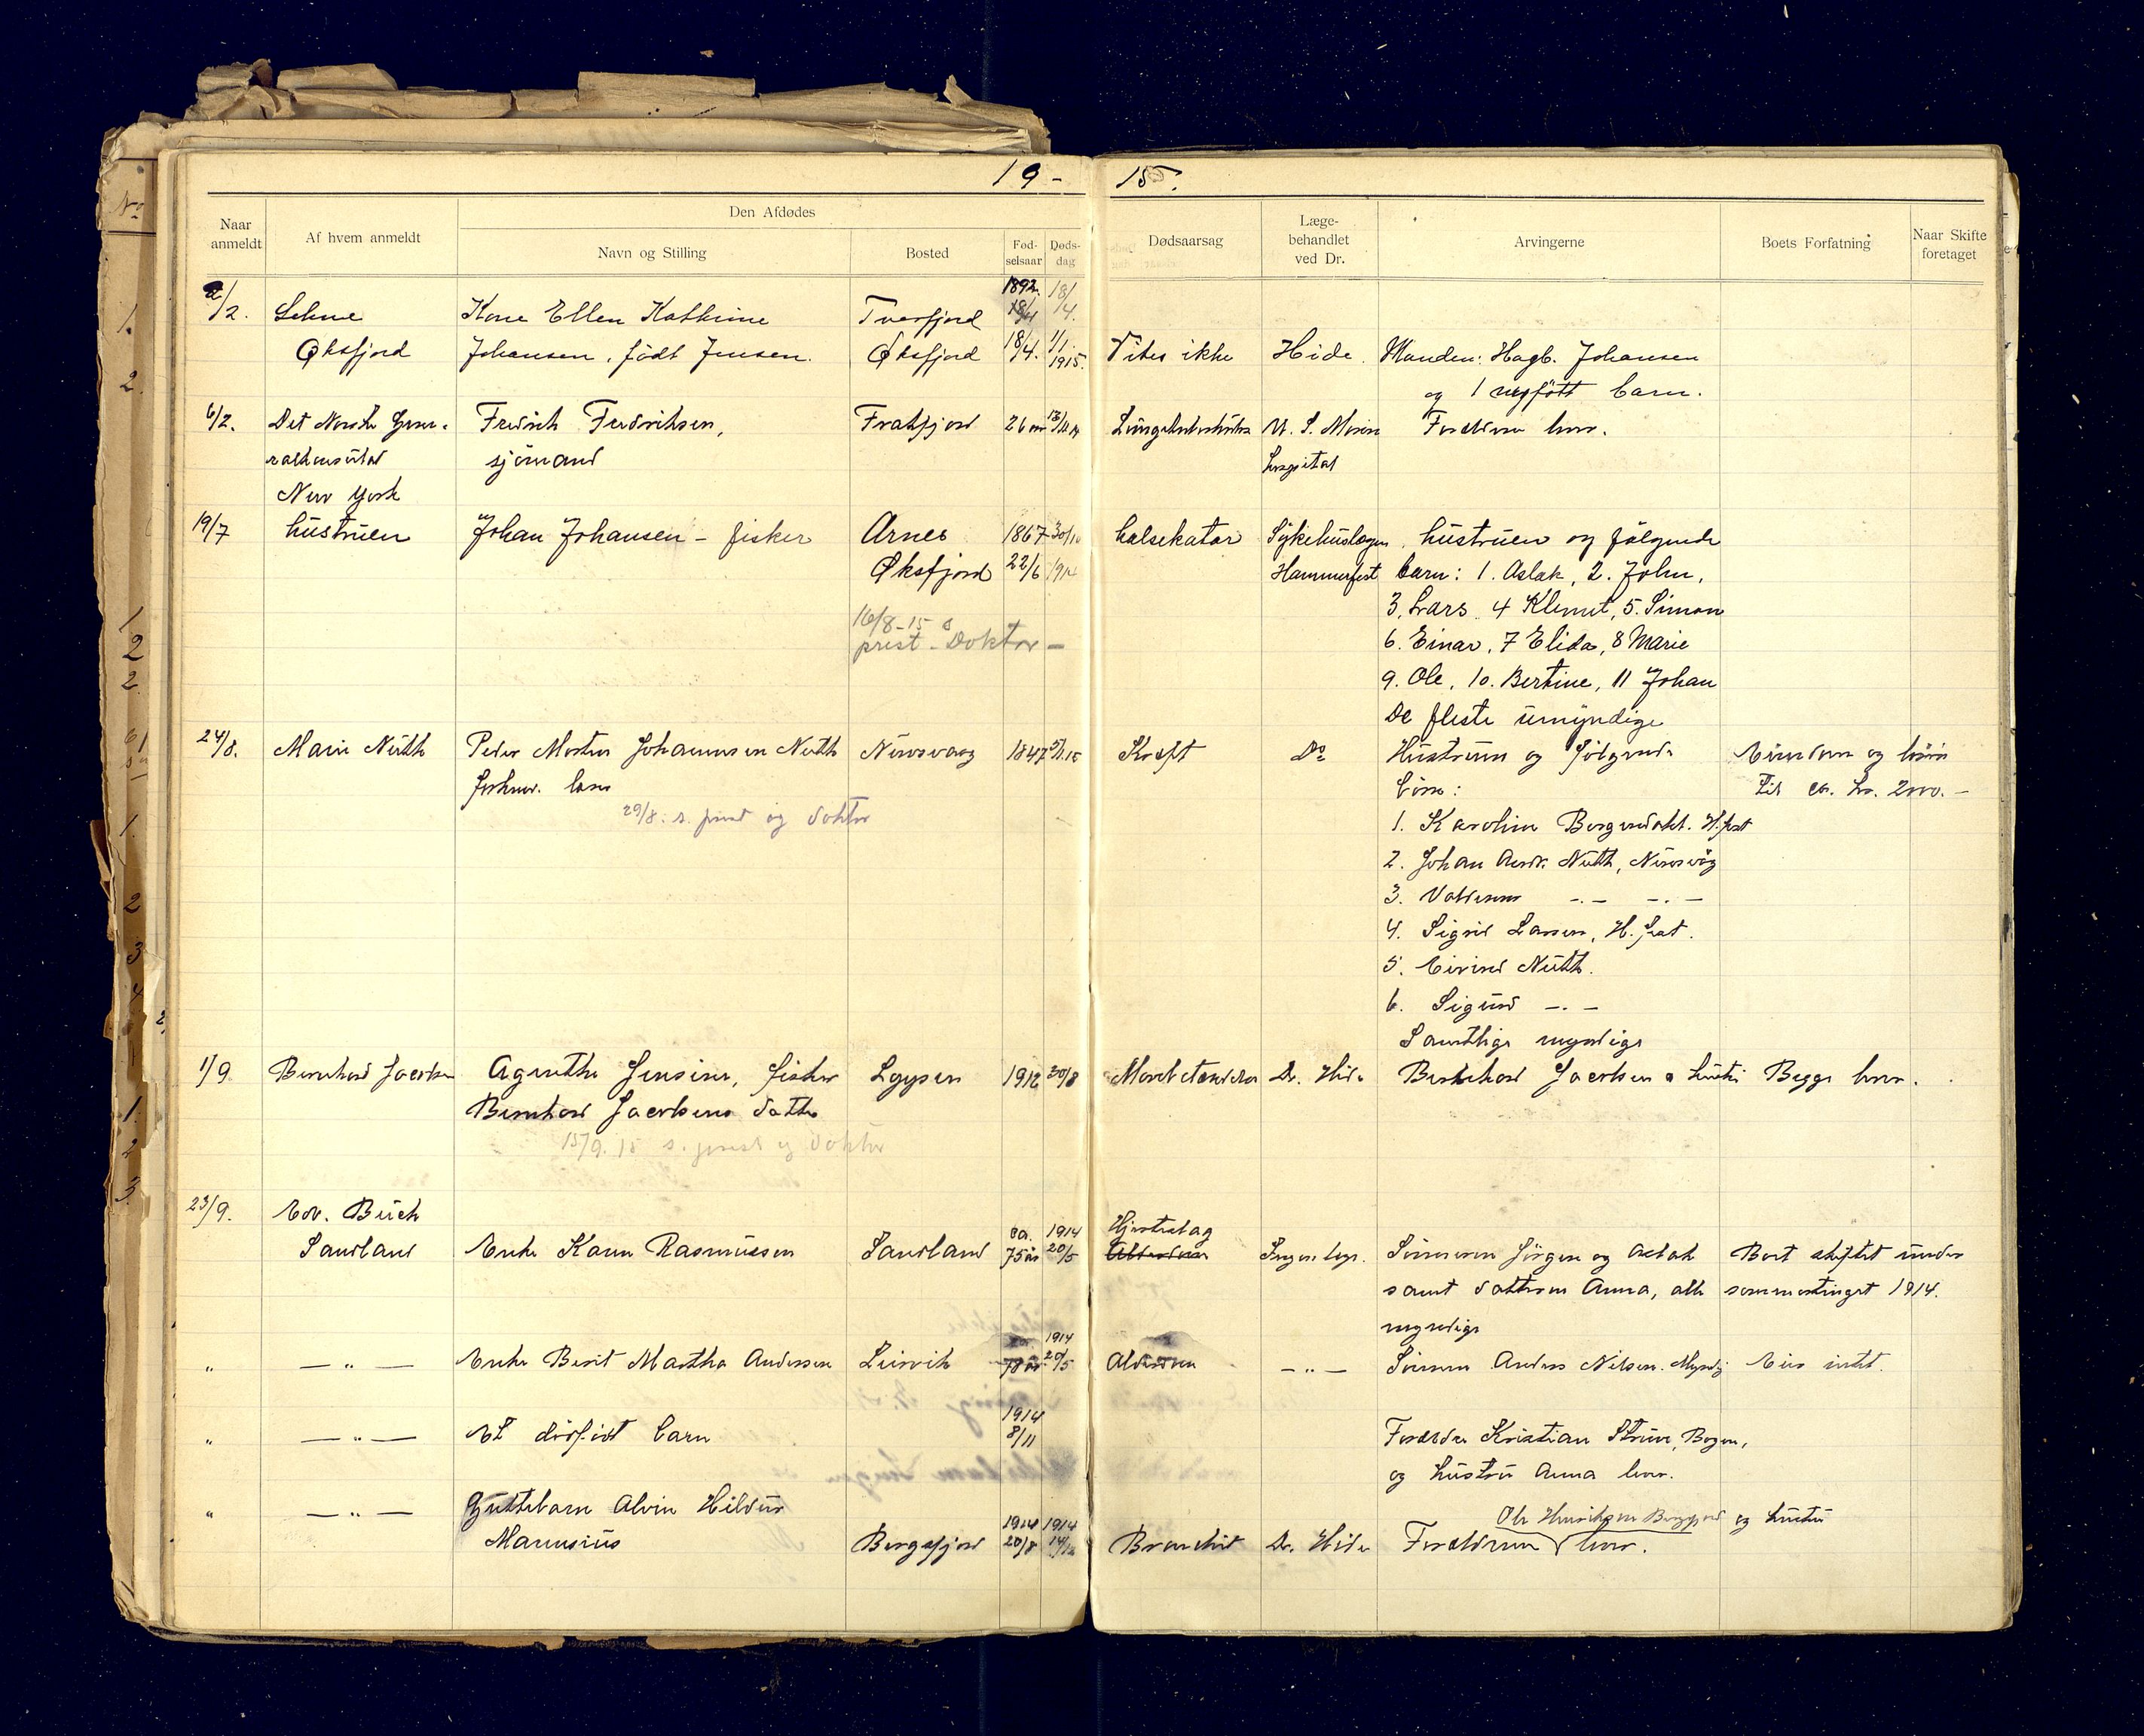 19-15.
Naar anmeldt
Af hvem anmeldt
Den Afdødes
Navn og Stilling
Bosted
Fød-selsaar
Døds-dag
Dødsaarsag
Læge-behandlet ved Dr.
Arvingerne
Boets Forfatning
Naar Skifte foretaget
2/2. Kone Ellen Kathrine Tverfjord 1892. 18/4.
Øksfjord Johansen, født Jensen. Øksfjord 18/4. 1/1 1915. Vites ikke Hide. Manden: Hagb. Johansen
og 1 nyfött barn.
6/2. Det Norske Gene- Fredrik Fredriksen, Frakfjord 26 aar U. S. Marine Forældrene lever.
ralkonsulat sjömand hospital
New York
19/7 hustruen Johan Johansen - fisker Arnes 1867 30/10 halsekatar Sykehuslægen hustruen og følgende
Øksfjord 22/6 1914 Hammerfest barn: 1. Aslak, 2. John,
3. Lars. 4 Klemet, 5. Simon
16/8-15 s prest - Doktor -
6. Einar, 7 Elida, 8 Marie
9. Ole, 10. Bertine, 11 Johan
De fleste umyndige
24/8. Marie Nuth Peder Morten Johannesen Nuth Nuvsvaag 1847 5/1.15 Kræft Do Hustruen og følgende Eiendom og husin
forhenv. løse barn: til ca. kr. 2000.-
29/8. s. prest og doktor
1. Karoline Bergersdahl. H.fest
2. Johan Andr. Nuth, Nuvsvåg
3. Valdemar -.- -.-
4. Sigrid Larsen, H.fest.
5. Eivind Nuth.
6. Sigurd -.-
Samtlige myndige
1/9 Bernhard Jacobsen Agnethe Jensine, fisker Loppen 1912 20/8 Dr. Hide Bernhard Jacobsen & hustru Begge lever.
Bernhard Jacobsens datter
15/9.15 s. prest og doktor
23/9. Edv. Buck Hjerteslag
Sandland Enke Karen Rasmussen Sandland ca. 75 år 1914 20/5 Alderdom Ingen lege. Sönnerne Jörgen og Aslak Boet skiftet under
samt datteren Anna, alle sommertinget 1914.
myndige
" — " — Enke Berit Martha Andersen Lervik 78 år 1914 20/5 Alderdom — " — Sönnen Anders Nilsen. Myndig Eier intet.
" — " — Et dödfödt barn 1914 8/11 Forældre Kristian Strøm, Bogen,
og hustru Anna lever.
" — " — Guttebarn Alvin Hildur Ole Henriksen Bergsfjord og hustru
Mariusius Bergsfjord 1914 20/8 1914 14/12 Bronchit Dr. Hide Forældrene lever.